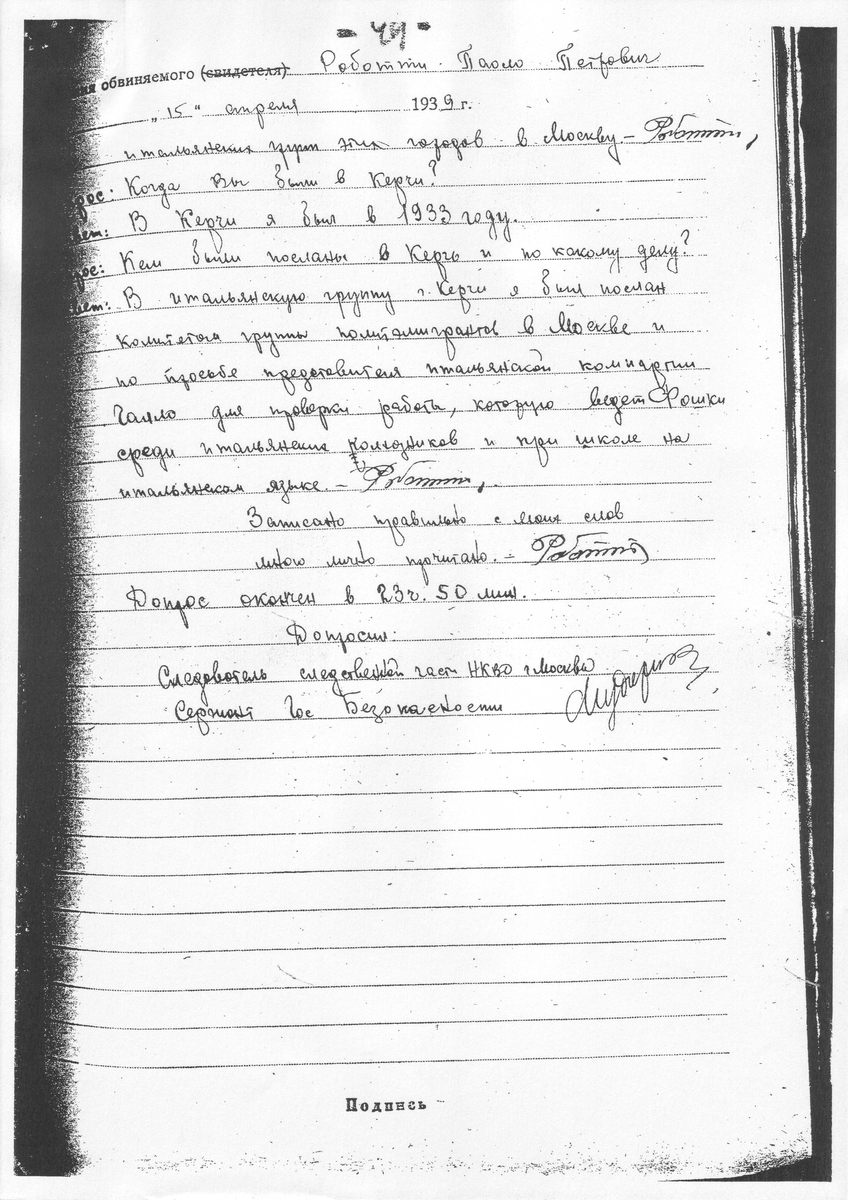 - 49 -
ия обвиняемого (свидетеля) Роботти Паоло Петрович
„15“ апреля 1939 г.
итальянских групп этих городов в Москву – Роботти,
рос: Когда Вы были в Керчи?
вет: В Керчи я был в 1933 году.
рос: Кем были посланы в Керчь и по какому делу?
вет: В итальянскую группу г. Керчи я был послан
комитетом группы политэмигрантов в Москве и
по просьбе представителя итальянской компартии
Галло для проверки работы, которую ведет Фошки
среди итальянских колхозников и при школе на
итальянском языке. – Роботти,
Записано правильно с моих слов
мною лично прочитано. – Роботти
Допрос окончен в 23 ч. 50 мин.
Допросил:
Следователь следственной части НКВД г. Москва
Сержант Гос Безопасности
Подпись